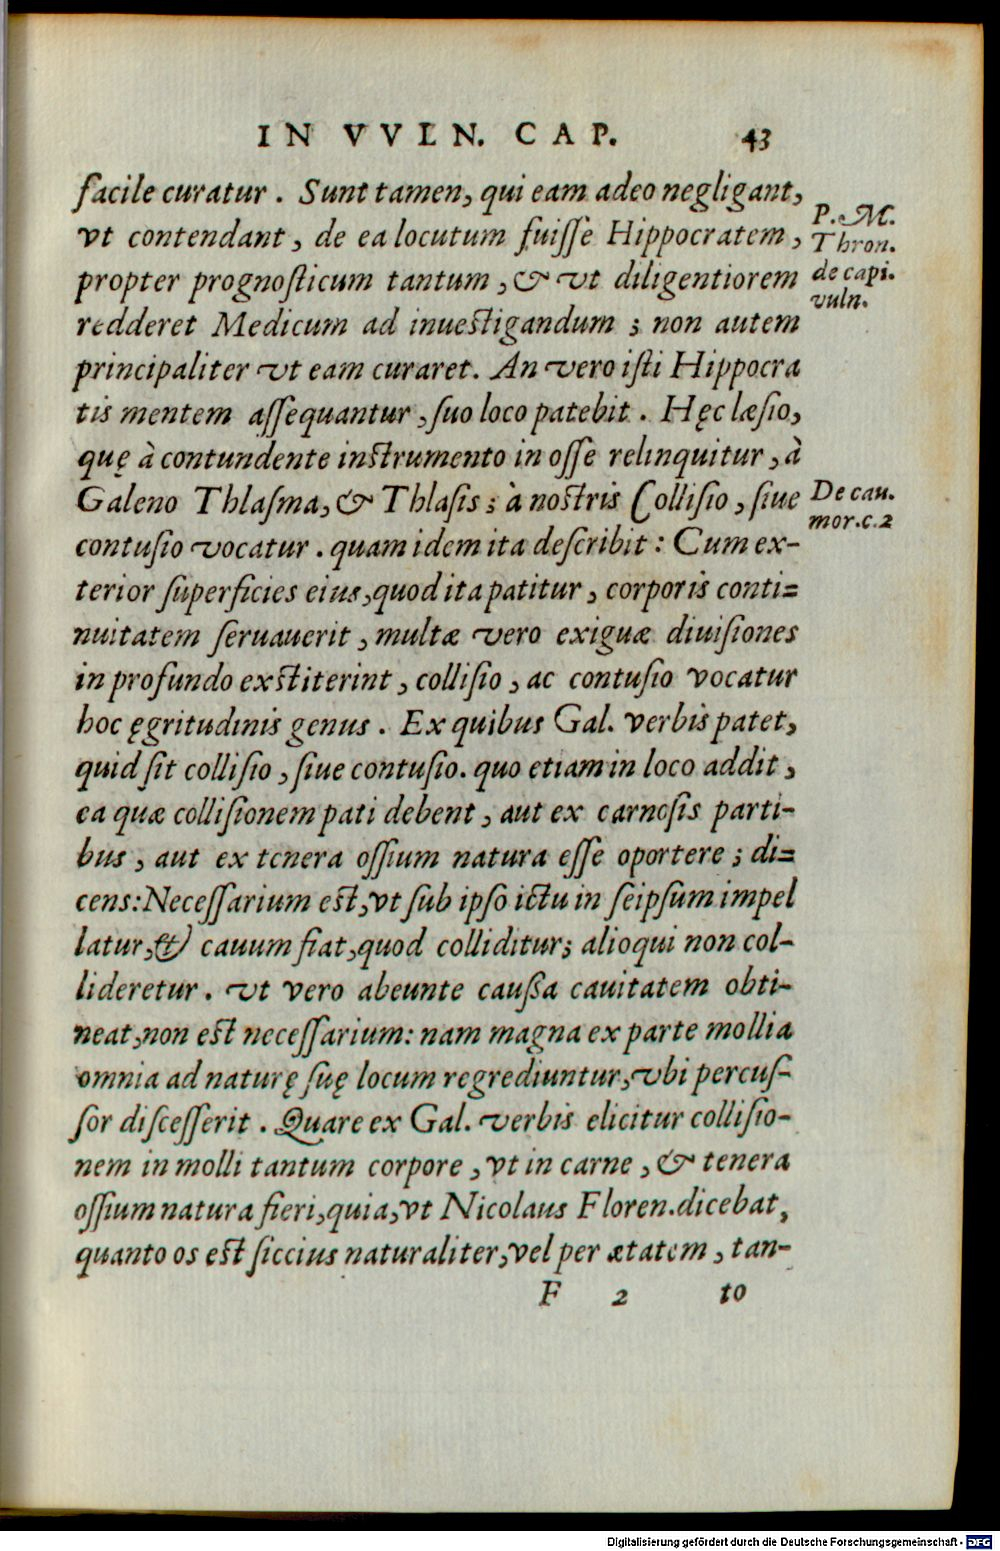 IN VVLN. CAP. 43
facile curatur . Sunt tamen, qui eam adeo negligant,
vt contendant , de ea locutum fuisse Hippocratem ,
propter prognosticum tantum , & vt diligentiorem
redderet Medicum ad inuestigandum ; non autem
principaliter vt eam curaret. An vero isti Hippocra
tis mentem assequantur , suo loco patebit . Hęc læsio,
quę à contundente instrumento in osse relinquitur , à
Galeno Thlasma, & Thlasis ; à nostris Collisio , siue
contusio vocatur . quam idem ita describit : Cum ex-
terior superficies eius, quod ita patitur , corporis conti=
nuitatem seruauerit , multæ vero exiguæ diuisiones
in profundo exstiterint , collisio , ac contusio vocatur
hoc ęgritudinis genus . Ex quibus Gal. verbis patet,
quid sit collisio , siue contusio. quo etiam in loco addit ,
ea quæ collisionem pati debent , aut ex carnosis parti-
bus , aut ex tenera ossium natura esse oportere ; di=
cens: Necessarium est, vt sub ipso ictu in seipsum impel
latur, & cauum fiat, quod colliditur; alioqui non col-
lideretur . vt vero abeunte caußa cauitatem obti-
neat, non est necessarium: nam magna ex parte mollia
omnia ad naturę suę locum regrediuntur, vbi percus-
sor discesserit . Quare ex Gal. verbis elicitur collisio-
nem in molli tantum corpore , vt in carne , & tenera
ossium natura fieri, quia, vt Nicolaus Floren. dicebat,
quanto os est siccius naturaliter, vel per ætatem , tan-
F 2 to
P. M.
Thron.
de capi.
vuln.
De cau.
mor. c. 2
Digitalisierung gefördert durch die Deutsche Forschungsgemeinschaft - DFG